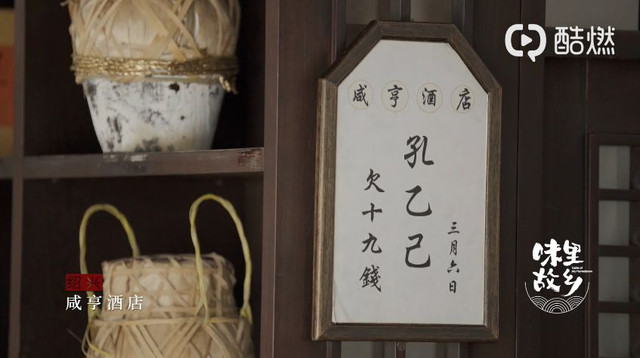 酷燃
咸亨酒店
三月六日
孔乙己
欠十九錢
味里
故乡
绍兴
咸亨酒店